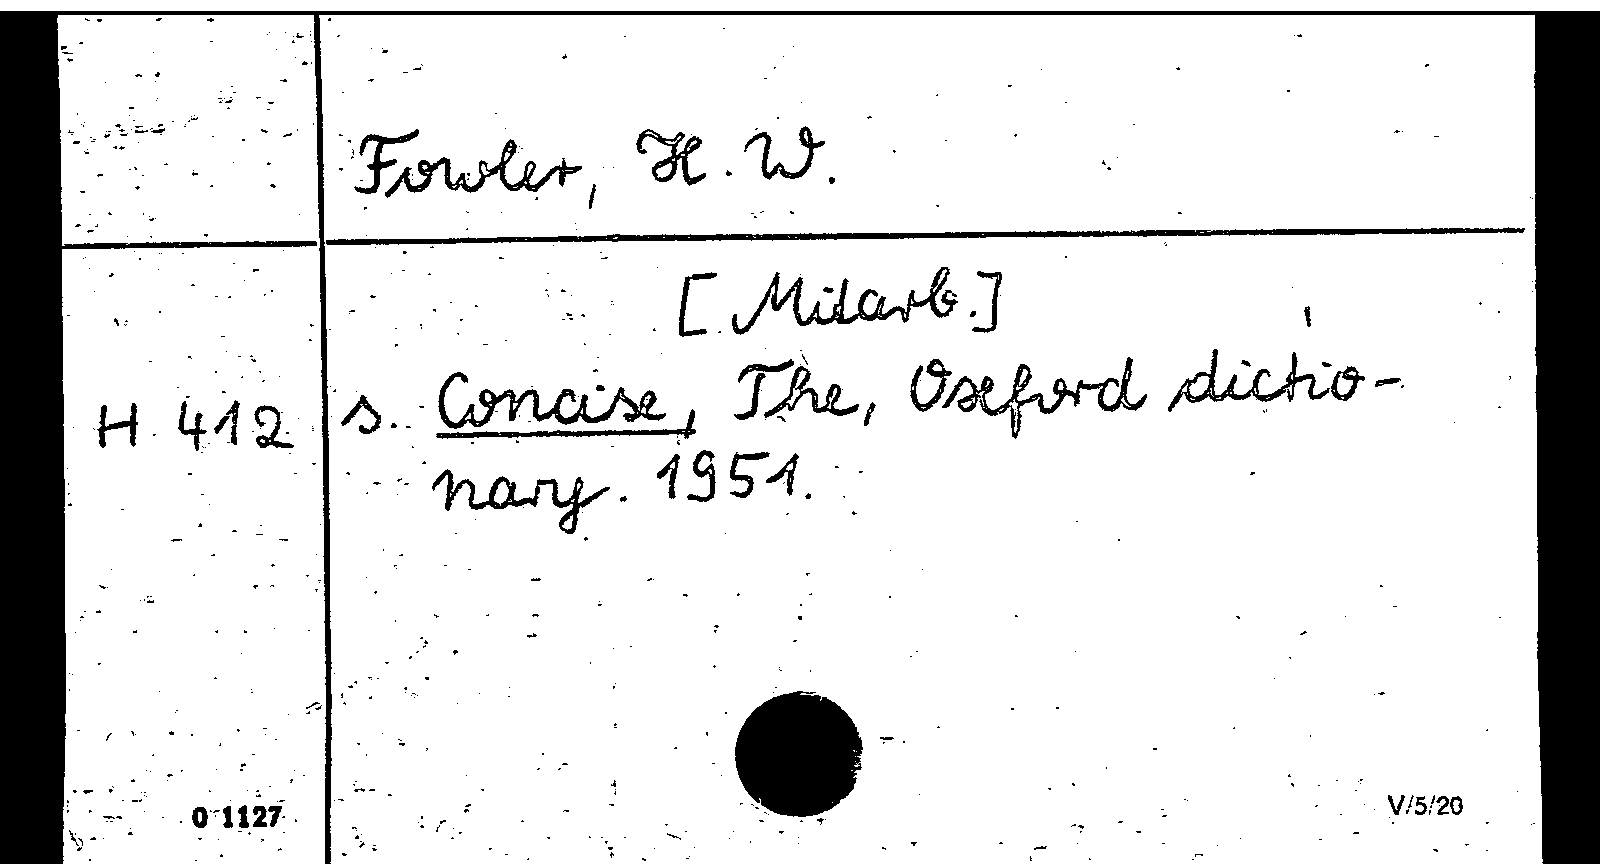 Fowler, H. W.
[Mitarb.]
H 412 s. Concise, The, Oxford dictio-
nary. 1951.
0 1127
V/5/20